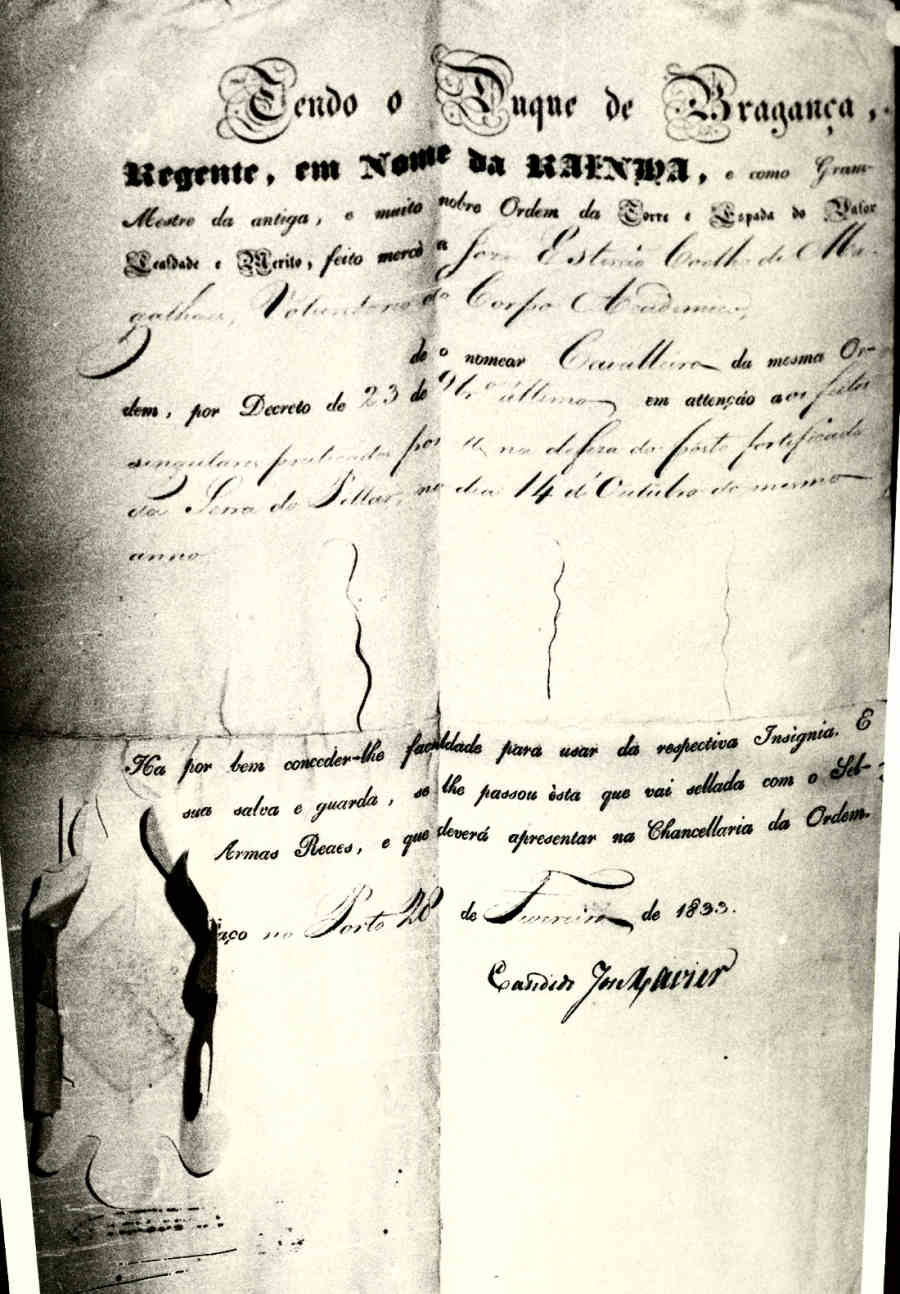 Tendo o Duque de Bragança,
Regente, em Nome da RAINHA, e como Gram-
Mestre da antiga, e muito nobre Ordem da Torre e Espada do Valor
Lealdade e Merito, feito mercê a José Estevão Coelho de Ma-
galhaes, Voluntario do Corpo Academico,
de o nomear Cavalleiro da mesma Or-
dem, por Decreto de 23 de 9br.o ultimo em attenção aos feitos
singulares praticados por elle na defeza do pósto fortificado
da Serra do Pillar, no dia 14 d'Outubro do mesmo
anno
Ha por bem conceder-lhe faculdade para usar da respectiva Insignia. E
sua salva e guarda, se lhe passou ésta que vai sellada com o Sel-
Armas Reaes, e que deverá apresentar na Chancellaria da Ordem.
aço no Porto 28 de Fevereiro de 1833.
Candido José Xavier